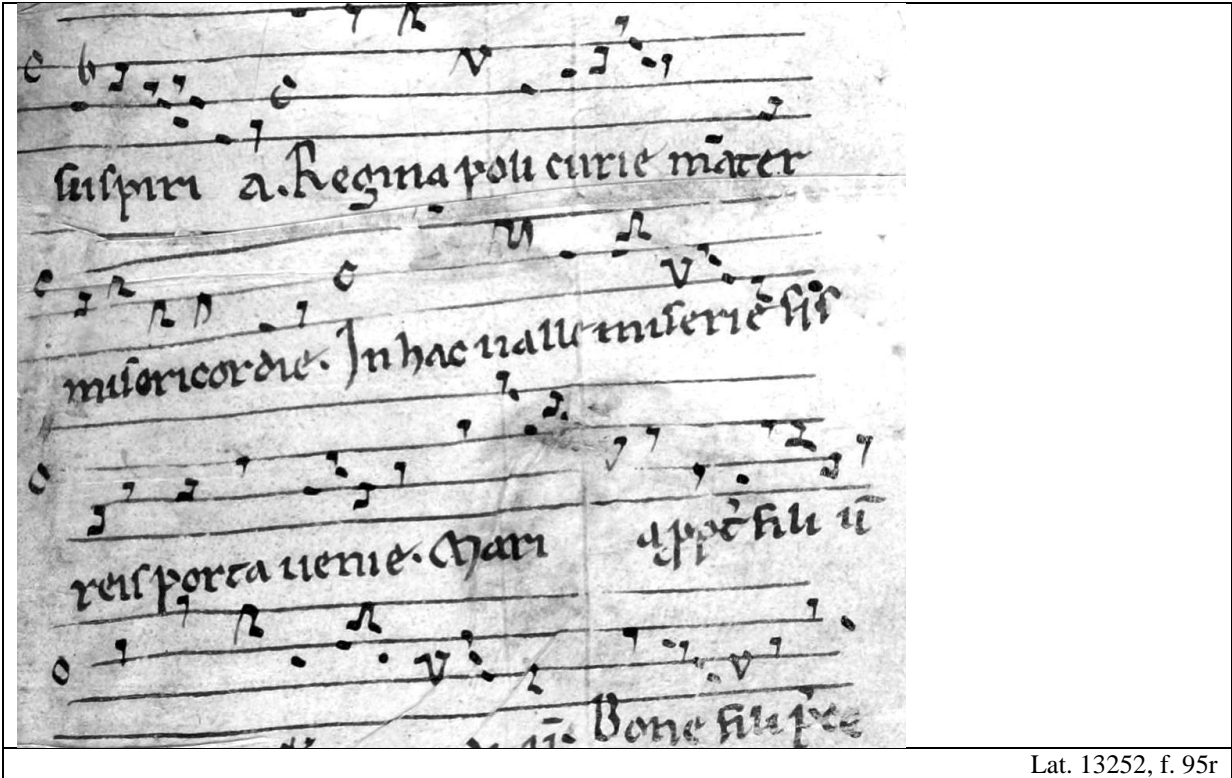 suspiri a. Regina poli curie m̄ater
misericordie. In hac ualle miserie sis
reis porta uenie. Mari a ppt̄ fili ū
ū. Bone fili
Lat. 13252, f. 95r